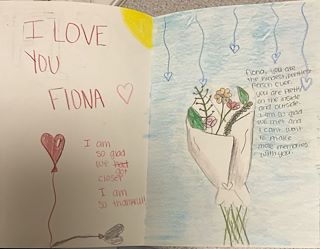 I LOVE
YOU
FIONA
I am
so glad
we
got
closer
I am
so thankful!!
Fiona, you are
the kindest, prettiest
person ever.
you are pretty
on the inside
and outside.
I am so glad
we met and
I cant wait
to make
more memories
with you.